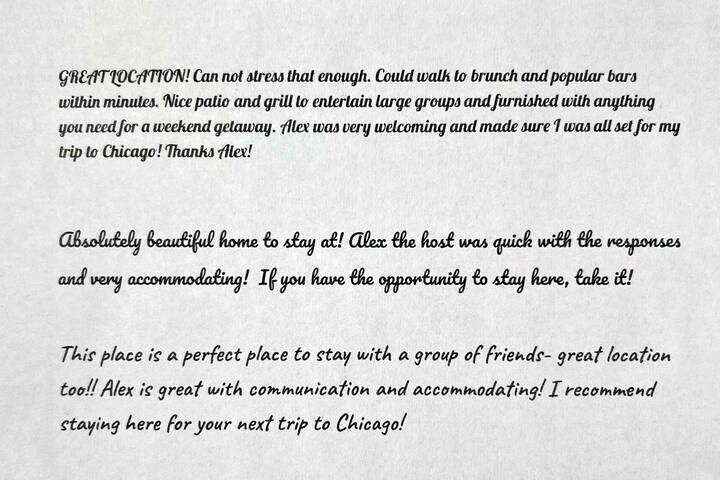 GREAT LOCATION! Can not stress that enough. Could walk to brunch and popular bars
within minutes. Nice patio and grill to entertain large groups and furnished with anything
you need for a weekend getaway. Alex was very welcoming and made sure I was all set for my
trip to Chicago! Thanks Alex!
Absolutely beautiful home to stay at! Alex the host was quick with the responses
and very accommodating! If you have the opportunity to stay here, take it!
This place is a perfect place to stay with a group of friends- great location
too!! Alex is great with communication and accommodating! I recommend
staying here for your next trip to Chicago!